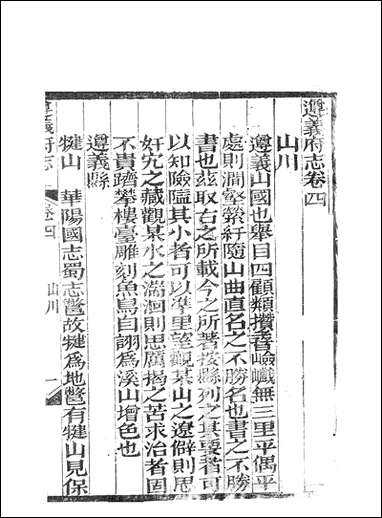 遵義府志卷四
山川
遵義山國也舉目四顧類攢峇嶮巇無三里平偶平
處則澗壑縈紆隨山曲直名之不勝名也書之不勝
書也茲取古之所載今之所著按縣列之其要者可
以知險隘其小者可以準里望觀某山之遼僻則思
奸宄之藏觀某水之湍洄則思厲揭之苦求治者固
不貴躋攀樓臺雕刻魚鳥自詡爲溪山增色也
遵義縣
犍山 華陽國志蜀志鷩故犍爲地鷩有犍山見保
遵義府志
卷四
山川
一